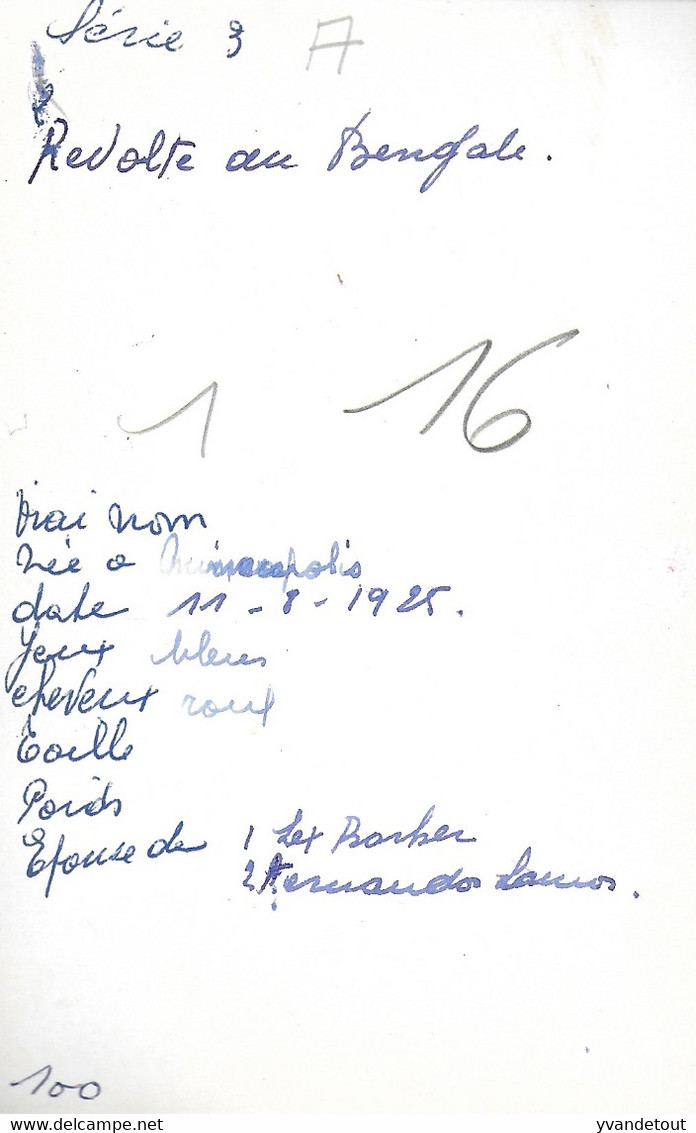 Série 3 A
Revolte au Bengale.
1 16
Vrai nom
Née a Minneapolis
date 11-8-1925.
Yeux bleus
cheveux roux
Taille
Poids
Epouse de 1 Lex Barker
2 Fernandos Lamos.
100
delcampe.net
yvandetout